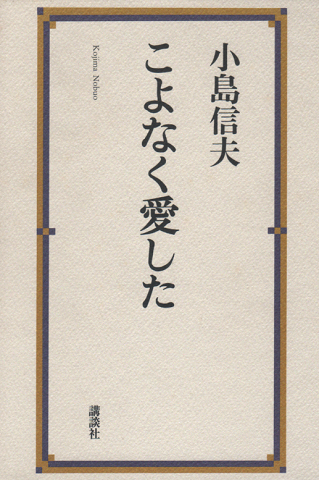 小島信夫
こよなく愛した
Kojima Nobuo
講談社